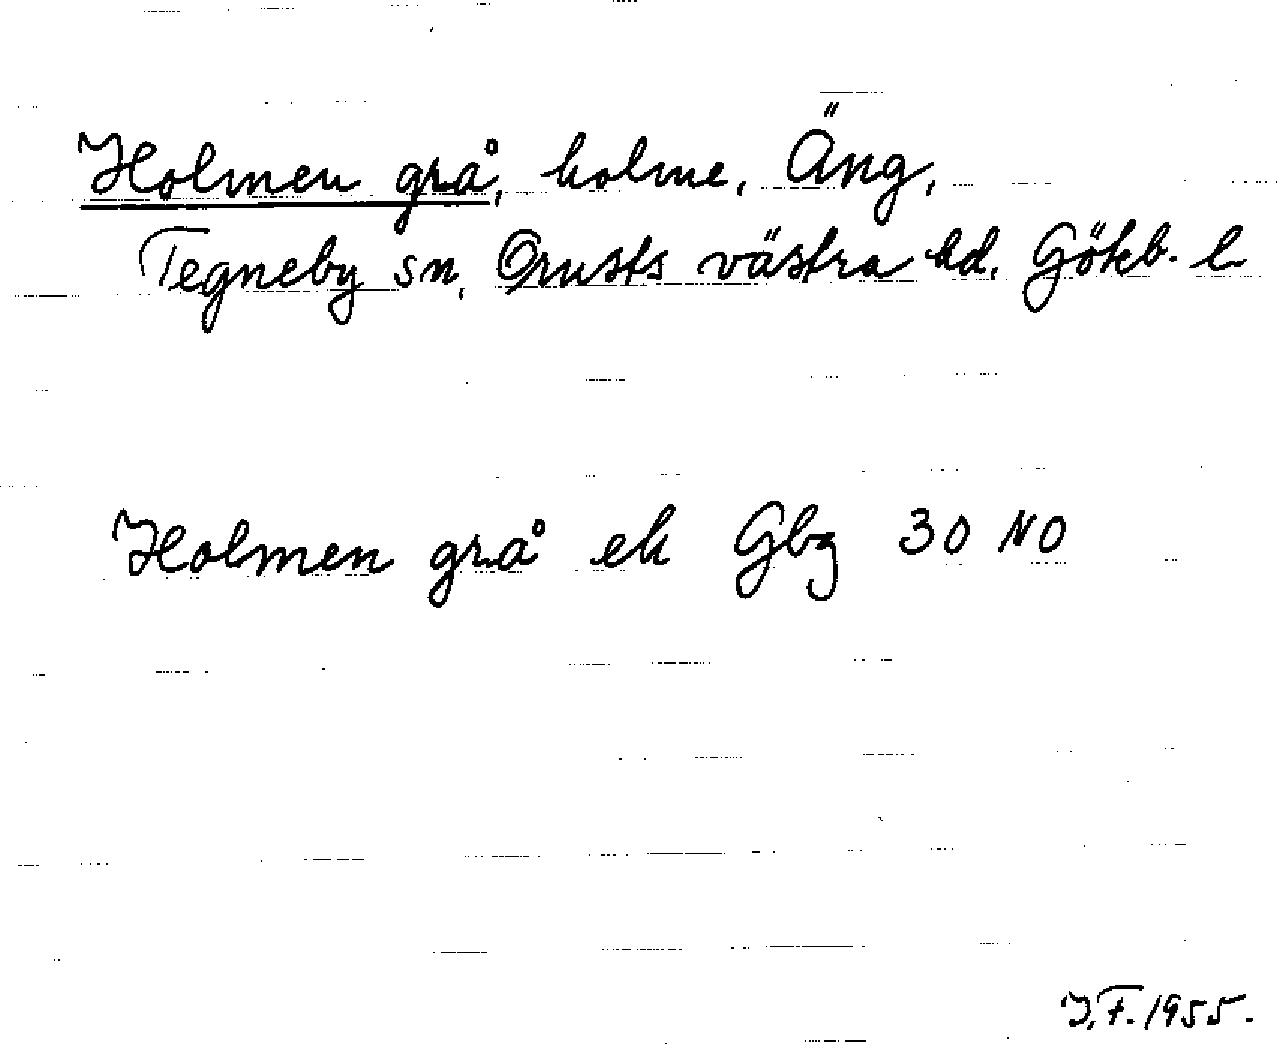 Holmen grå, holme, Äng,
Tegneby sn, Orusts västra hd. Göteb. l
Holmen grå ek Gbg 30 NO
I.F. 1955.